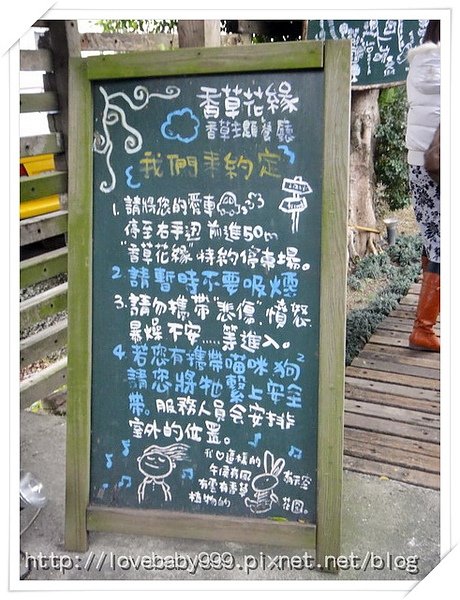 香草花緣
香草主題餐廳
我們來約定
1. 請將您的愛車
停至右手边 前進50m
"香草花緣"特約停車場。
2. 請暫時不要吸煙
3. 請勿攜帶"悲傷"憤怒
暴燥 不安.....等進入。
4. 若您有攜帶喵咪 狗²
請您將牠繫上安全
帶。服務人員会安排
室外的位置。
我♡這樣的
午後有風
有雲有香草
植物的
有天空
花園。
http://lovebaby999.pixnet.net/blog